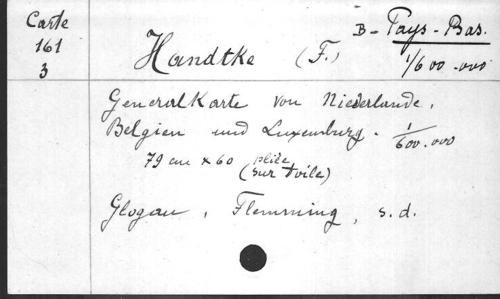 Carte
161
3
B - Pays-Bas.
Handtke (F.) 1/600.000
Generalkarte von Niederlande,
Belgien und Luxemburg. 1/600.000
79 cm x 60 (pliée sur toile)
Glogau, Flemming, s.d.